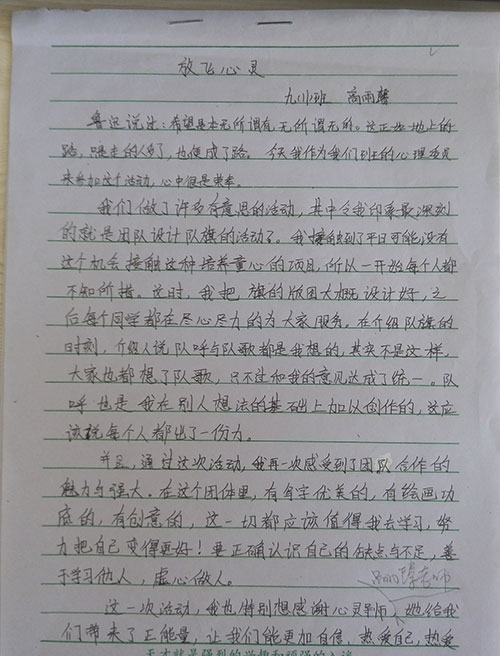 放飞心灵
九(1)班 高雨馨
鲁迅说过：希望是本无所谓有，无所谓无的。这正如地上的
路，走的人多了，也便成了路。今天我作为我们班的心理委员
来参加这个活动，心中很是荣幸。
我们做了许多有意思的活动，其中令我印象最深刻
的就是团队设计队旗的活动了。我接触到了平日可能没有
这个机会接触这种培养童心的项目，所以一开始每个人都
不知所措。这时，我把旗的版图大概设计好，之
后每个同学都在尽心尽力的为大家服务。在介绍队旗的
时刻，介绍人说队呼与队歌都是我想的，其实不是这样，
大家也都想了队歌，只不过和我的意见达成了统一。队
呼也是我在别人想法的基础上加以创作的，这应
该说每个人都出了一份力。
并且，通过这次活动，我再一次感受到了团队合作的
魅力与强大。在这个团体里，有写字优美的，有绘画功
底的，有创意的，这一切都应该值得我去学习，努
力把自己变得更好！要正确认识自己的缺点与不足，善
于学习他人，虚心做人。
老师
这一次活动，我也特别想感谢心灵导师，她给我
们带来了正能量，让我们能更加自信，热爱自己，热爱